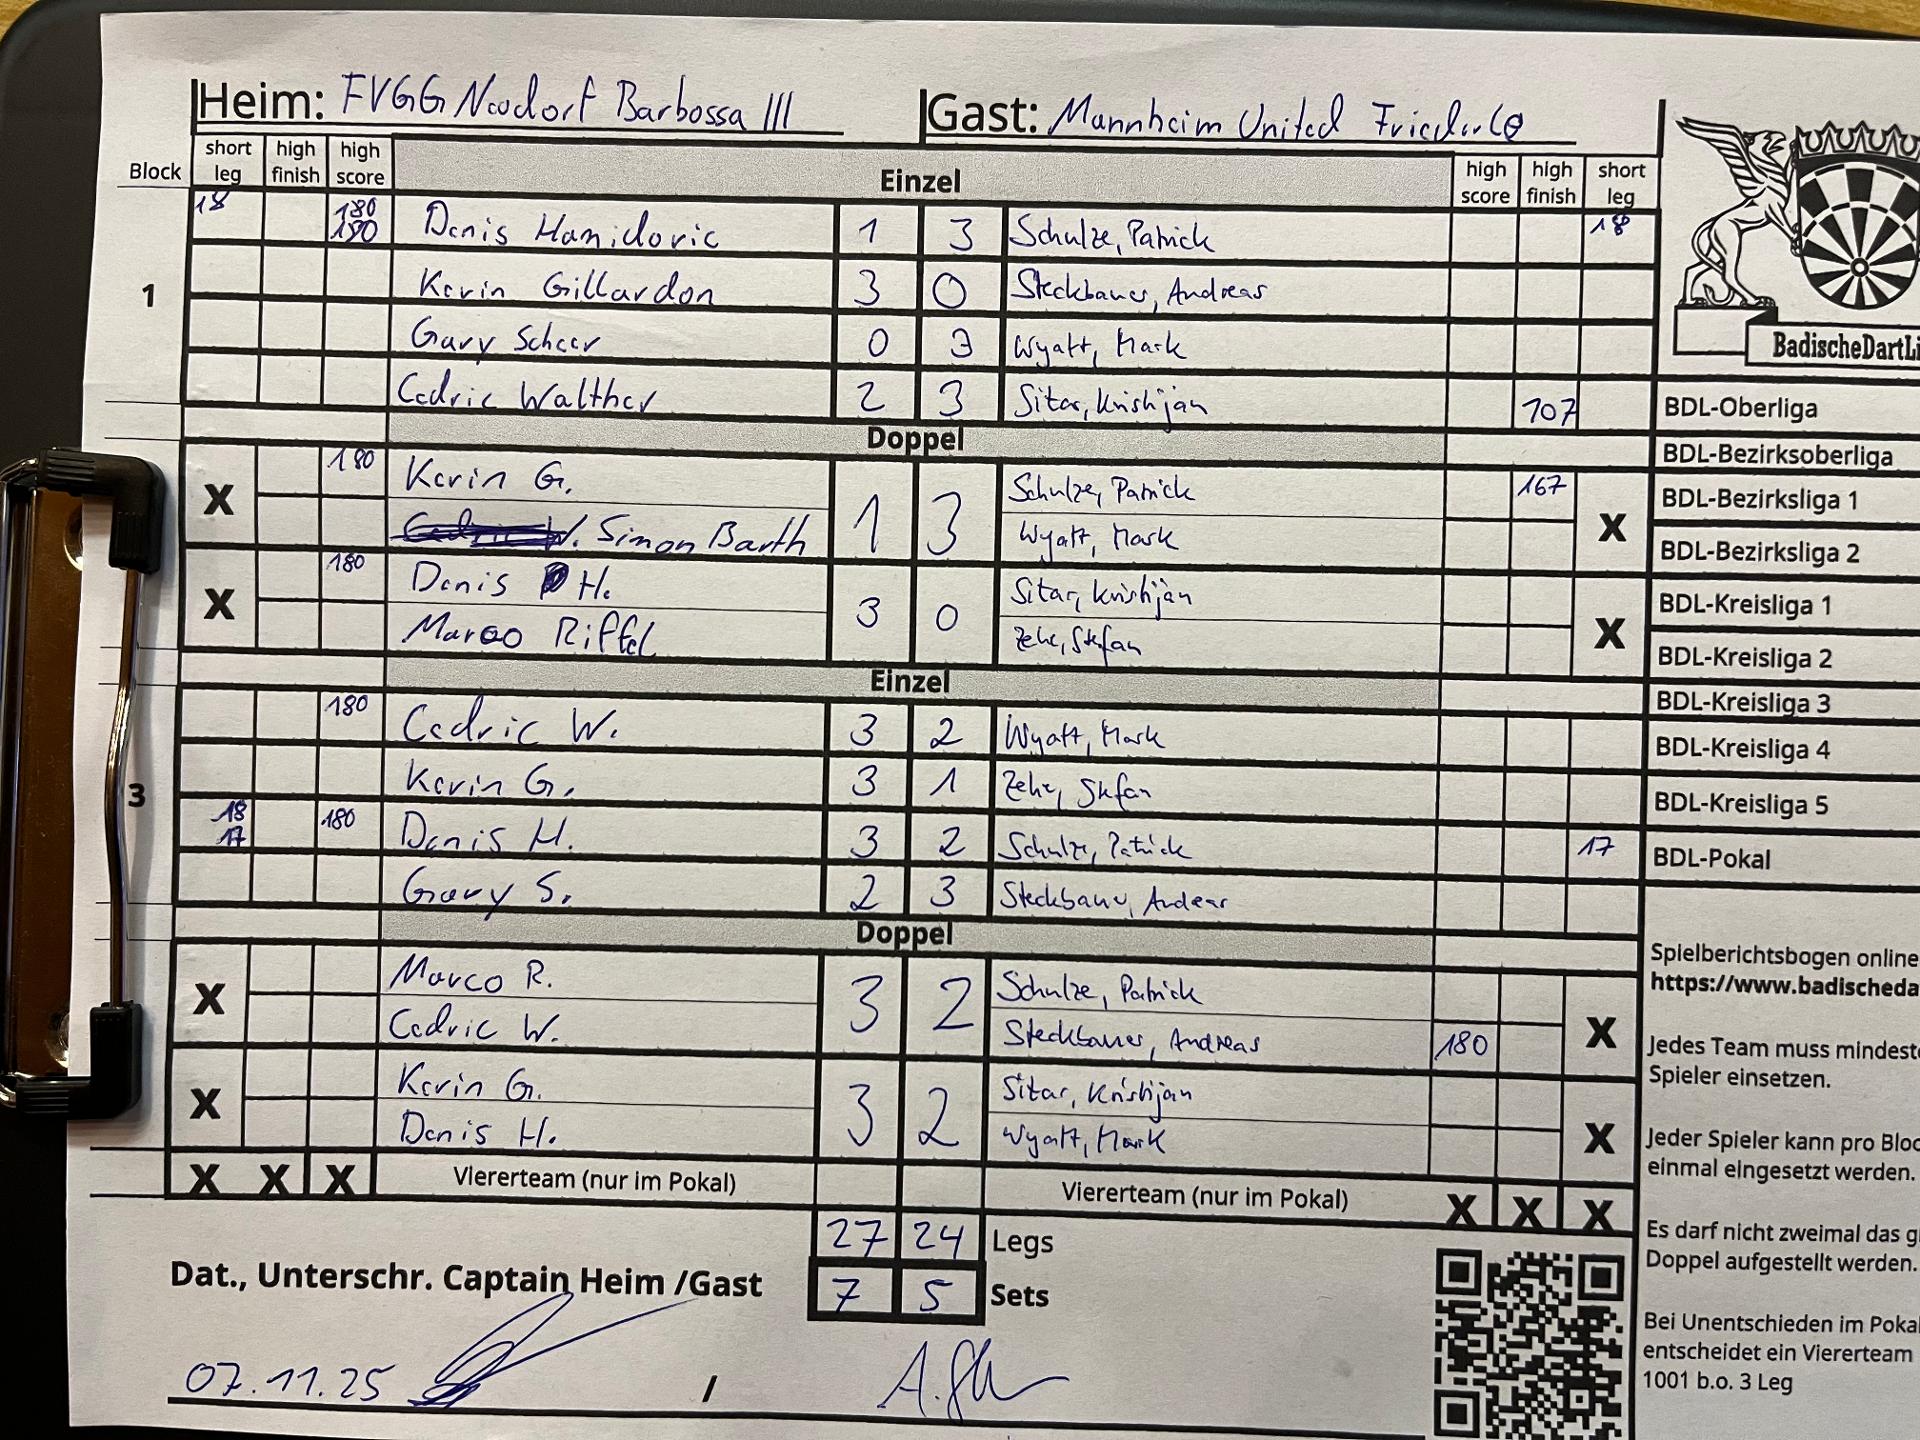 Heim: FVGG Neudorf Barbossa III Gast: Mannheim United
Block short leg high finish high score Einzel high score high finish short leg
18 180 180 Denis Hamidovic 1 3 Schulze, Patrick 18
1
Kevin Gillardon 3 0 Steckbauer, Andreas
Gary Scheer 0 3 Wyatt, Mark
Cedric Walther 2 3 Sitar, Kristijan 107
BadischeDartLi
BDL-Oberliga
Doppel
BDL-Bezirksoberliga
X 180 Kevin G. 1 3 Schulze, Patrick 167 X
Simon Barth Wyatt, Mark
BDL-Bezirksliga 1
BDL-Bezirksliga 2
X 180 Denis H. 3 0 Sitar, Kristijan X
Marco Riffel Zehe, Stefan
BDL-Kreisliga 1
BDL-Kreisliga 2
Einzel
BDL-Kreisliga 3
180 Cedric W. 3 2 Wyatt, Mark
BDL-Kreisliga 4
3
Kevin G. 3 1 Zehe, Stefan
BDL-Kreisliga 5
18 17 180 Denis H. 3 2 Schulze, Patrick 17
BDL-Pokal
Gary S. 2 3 Steckbauer, Andreas
Doppel
X Marco R. 3 2 Schulze, Patrick X
Cedric W. Steckbauer, Andreas 180
X Kevin G. 3 2 Sitar, Kristijan X
Denis H. Wyatt, Mark
X X X Viererteam (nur im Pokal) Viererteam (nur im Pokal) X X X
27 24 Legs
7 5 Sets
Dat., Unterschr. Captain Heim /Gast
07.11.25 /
Spielberichtsbogen online
https://www.badischeda
Jedes Team muss mindeste
Spieler einsetzen.
Jeder Spieler kann pro Bloc
einmal eingesetzt werden.
Es darf nicht zweimal das g
Doppel aufgestellt werden.
Bei Unentschieden im Pokal
entscheidet ein Viererteam
1001 b.o. 3 Leg